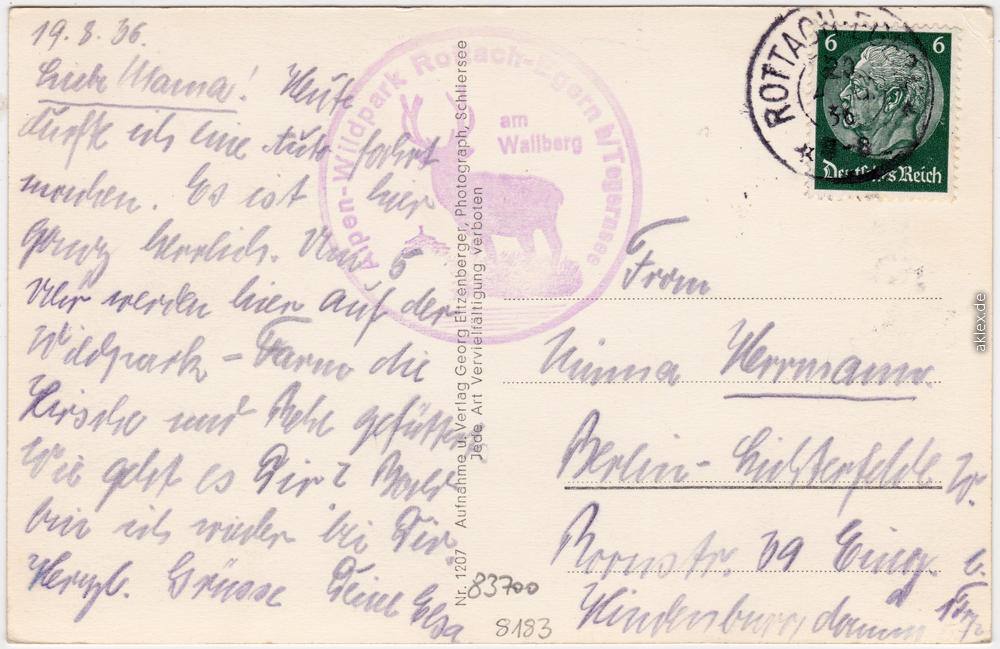 19. 8. 36.
Liebe Mama! Heute
durfte ich eine Auto fahrt
machen. Es ist hier
ganz herrlich. Um 5
Uhr werden hier auf der
Wildpark - Farm die
Hirsche und Rehe gefüttert
Wie geht es Dir? Bald
bin ich wieder bei Dir
Herzl. Grüsse Deine Elsa
Alpen-Wildpark Rottach-Egern b/Tegernsee
am
Wallberg
Nr. 1207 Aufnahme u. Verlag Georg Eitzenberger, Photograph, Schliersee
Jede Art Vervielfältigung verboten
ROTTACH-
36
6 6
Deutsches Reich
Frau
Minna Herrmann.
Berlin-Lichterfelde W.
Bornstr. 39 Eing.
Hindenburgdamm
83700
8183
aklex.de